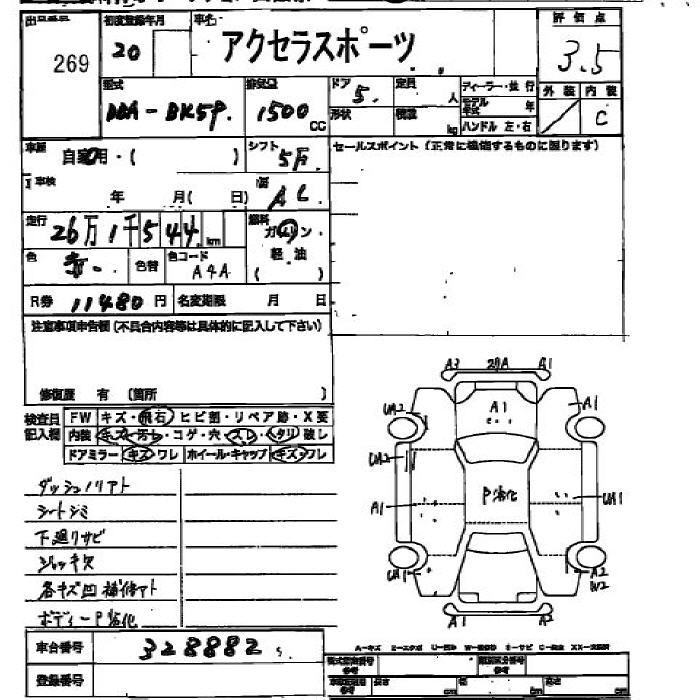 出品番号 初度登録年月 車名 評価点
269 20 アクセラスポーツ 3.5
型式 排気量 ドア 定員 ディーラー・並行 外装 内装
DBA-BK5P. 1500 CC 5. 人 モデル年式 年 C
形状 積載 kg ハンドル 左・右
車歴 自家用・( ) シフト 5万 セールスポイント (正常に機能するものに限ります)
車検 年 月( 日) AC
走行 26万1千544 km 燃料 ガソリン・
色 赤. 色替 色コード A4A 軽油 ( )
R券 11480 円 名変期限 月 日
注意事項申告欄 (不具合内容等は具体的に記入して下さい)
修復歴 有 (箇所 )
A3 29A A1
検査員記入欄 FW キズ・飛石・ヒビ割・リペア跡・X要
内装 キズ・汚レ・コゲ・穴・スレ・ヘタリ・破レ
ドアミラー キズ・ワレ ホイール・キャップ キズ・ワレ
UA2 A1 A1
UA2
A1 P劣化 UA1
UA1 A2
W2
A1 A2
ダッシュノリアト
シートシミ
下廻リサビ
ジャッキ欠
各キズ凹補修アト
ボディーP劣化
車台番号 328882 s
登録番号
A-キズ
長さ cm 幅 cm 高さ cm